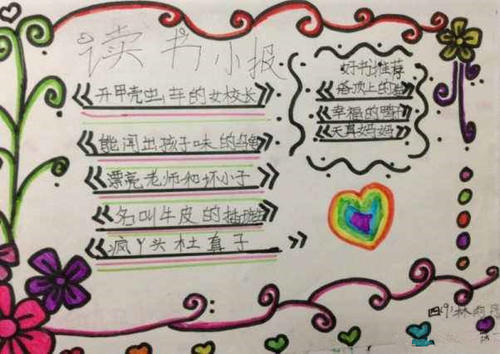 读书小报
《开甲壳虫车的女校长》
《能闻出孩子味的乌龟》
《漂亮老师和坏小子》
《名叫牛皮的插班生》
《疯丫头杜真子》
好书推荐
《塔顶上的
《幸福的鸭子》
《天真妈妈》
四(9)林雨